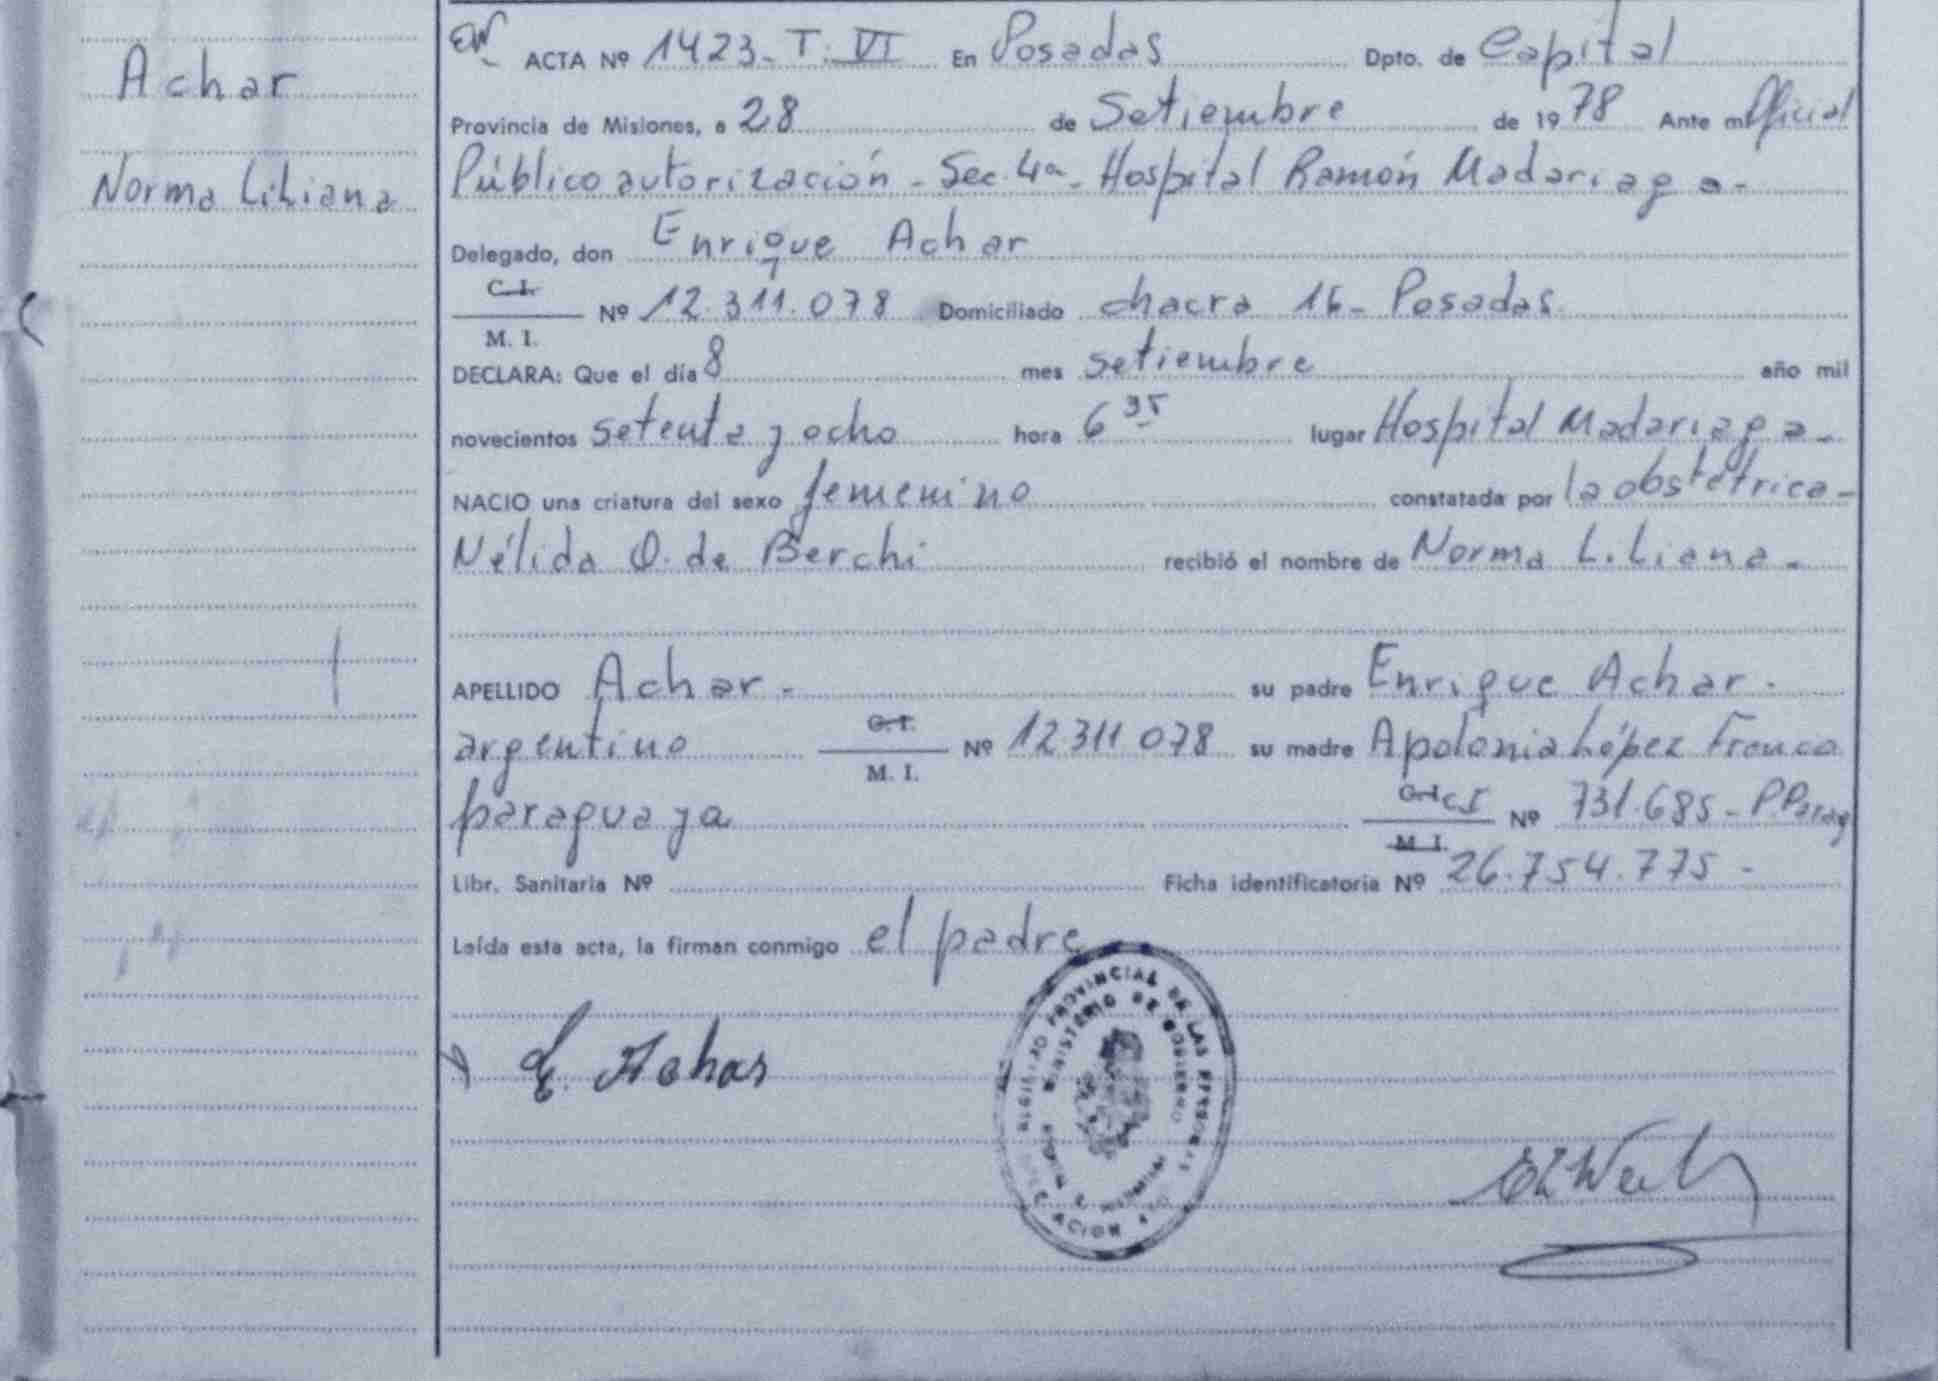 Achar
Norma Liliana
ACTA Nº 1423 - T. VI En Posadas Dpto. de Capital
Provincia de Misiones, a 28 de Setiembre de 1978 Ante mí Oficial
Público autorización - Sec. 4a - Hospital Ramón Madariaga -
Delegado, don Enrique Achar
C. I.
M. I.
Nº 12.311.078 Domiciliado chacra 16 - Posadas
DECLARA: Que el día 8 mes setiembre año mil
novecientos setenta y ocho hora 6 35 lugar Hospital Madariaga -
NACIO una criatura del sexo femenino constatada por la obstétrica -
Nélida O. de Berchi recibió el nombre de Norma Liliana -
APELLIDO Achar - su padre Enrique Achar -
argentino C. I. M. I. Nº 12.311.078 su madre Apolonia López Franco
paraguaya C. I. CI M. I. Nº 731.685 - P. Parag
Libr. Sanitaria Nº Ficha identificatoria Nº 26.754.775 -
Leída esta acta, la firman conmigo el padre
E. Achar
PROVINCIAL DE LAS PERSONAS
MINISTERIO DE GOBIERNO